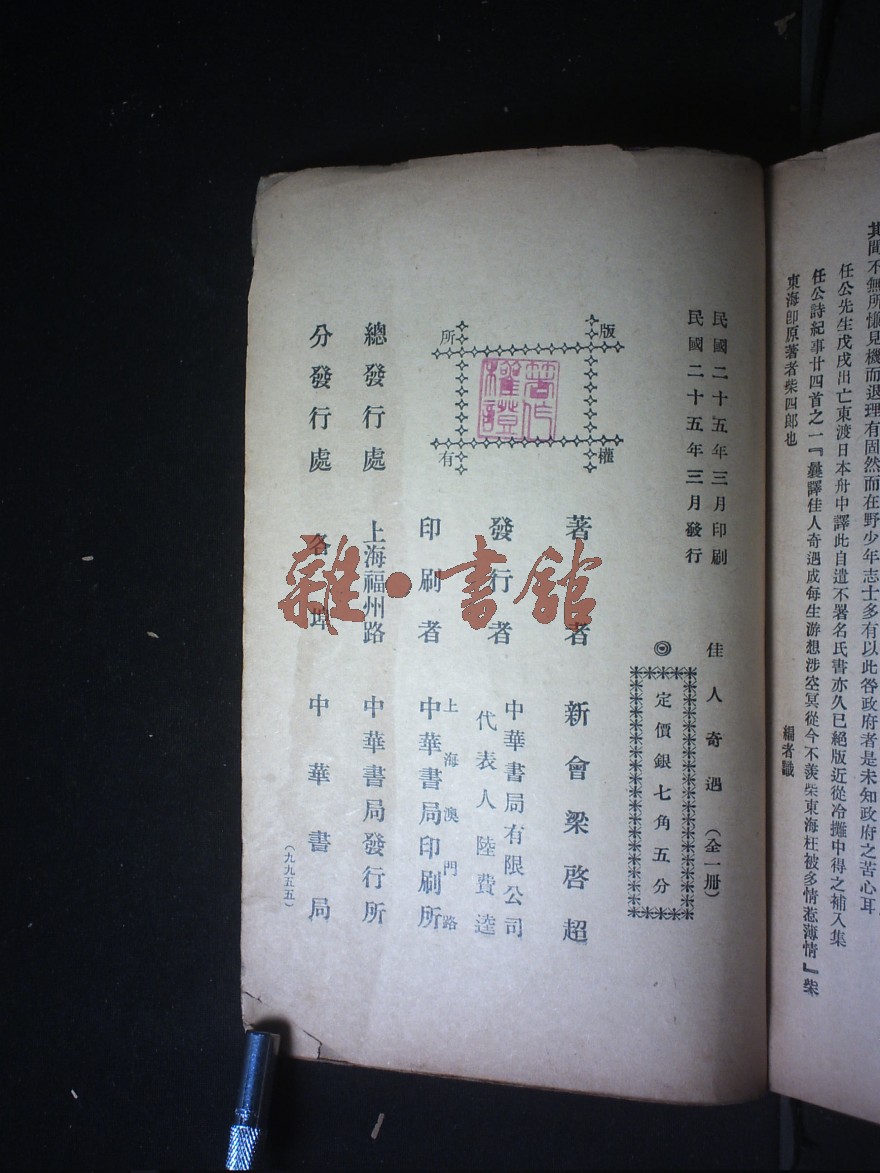 其間不無所懷見機而退理有固然而在野少年志士多有以此咎政府者是未知政府之苦心耳
任公先生戊戌出亡東渡日本舟中譯此自遣不署名氏書亦久已絕版近從冷攤中得之補入集
任公詩紀事廿四首之一『曩譯佳人奇遇成每生游想涉空冥從今不羨柴東海枉被多情惹薄情』柴
東海卽原著者柴四郎也
編者識
民國二十五年三月印刷
民國二十五年三月發行
佳人奇遇（全一册）
◎定價銀七角五分
版權所有
著作權證
著者 新會梁啓超
發行者 中華書局有限公司
代表人陸費逵
印刷者 上海澳門路
中華書局印刷所
總發行處 上海福州路 中華書局發行所
分發行處 各埠 中華書局
（九九五五）
雜·書館